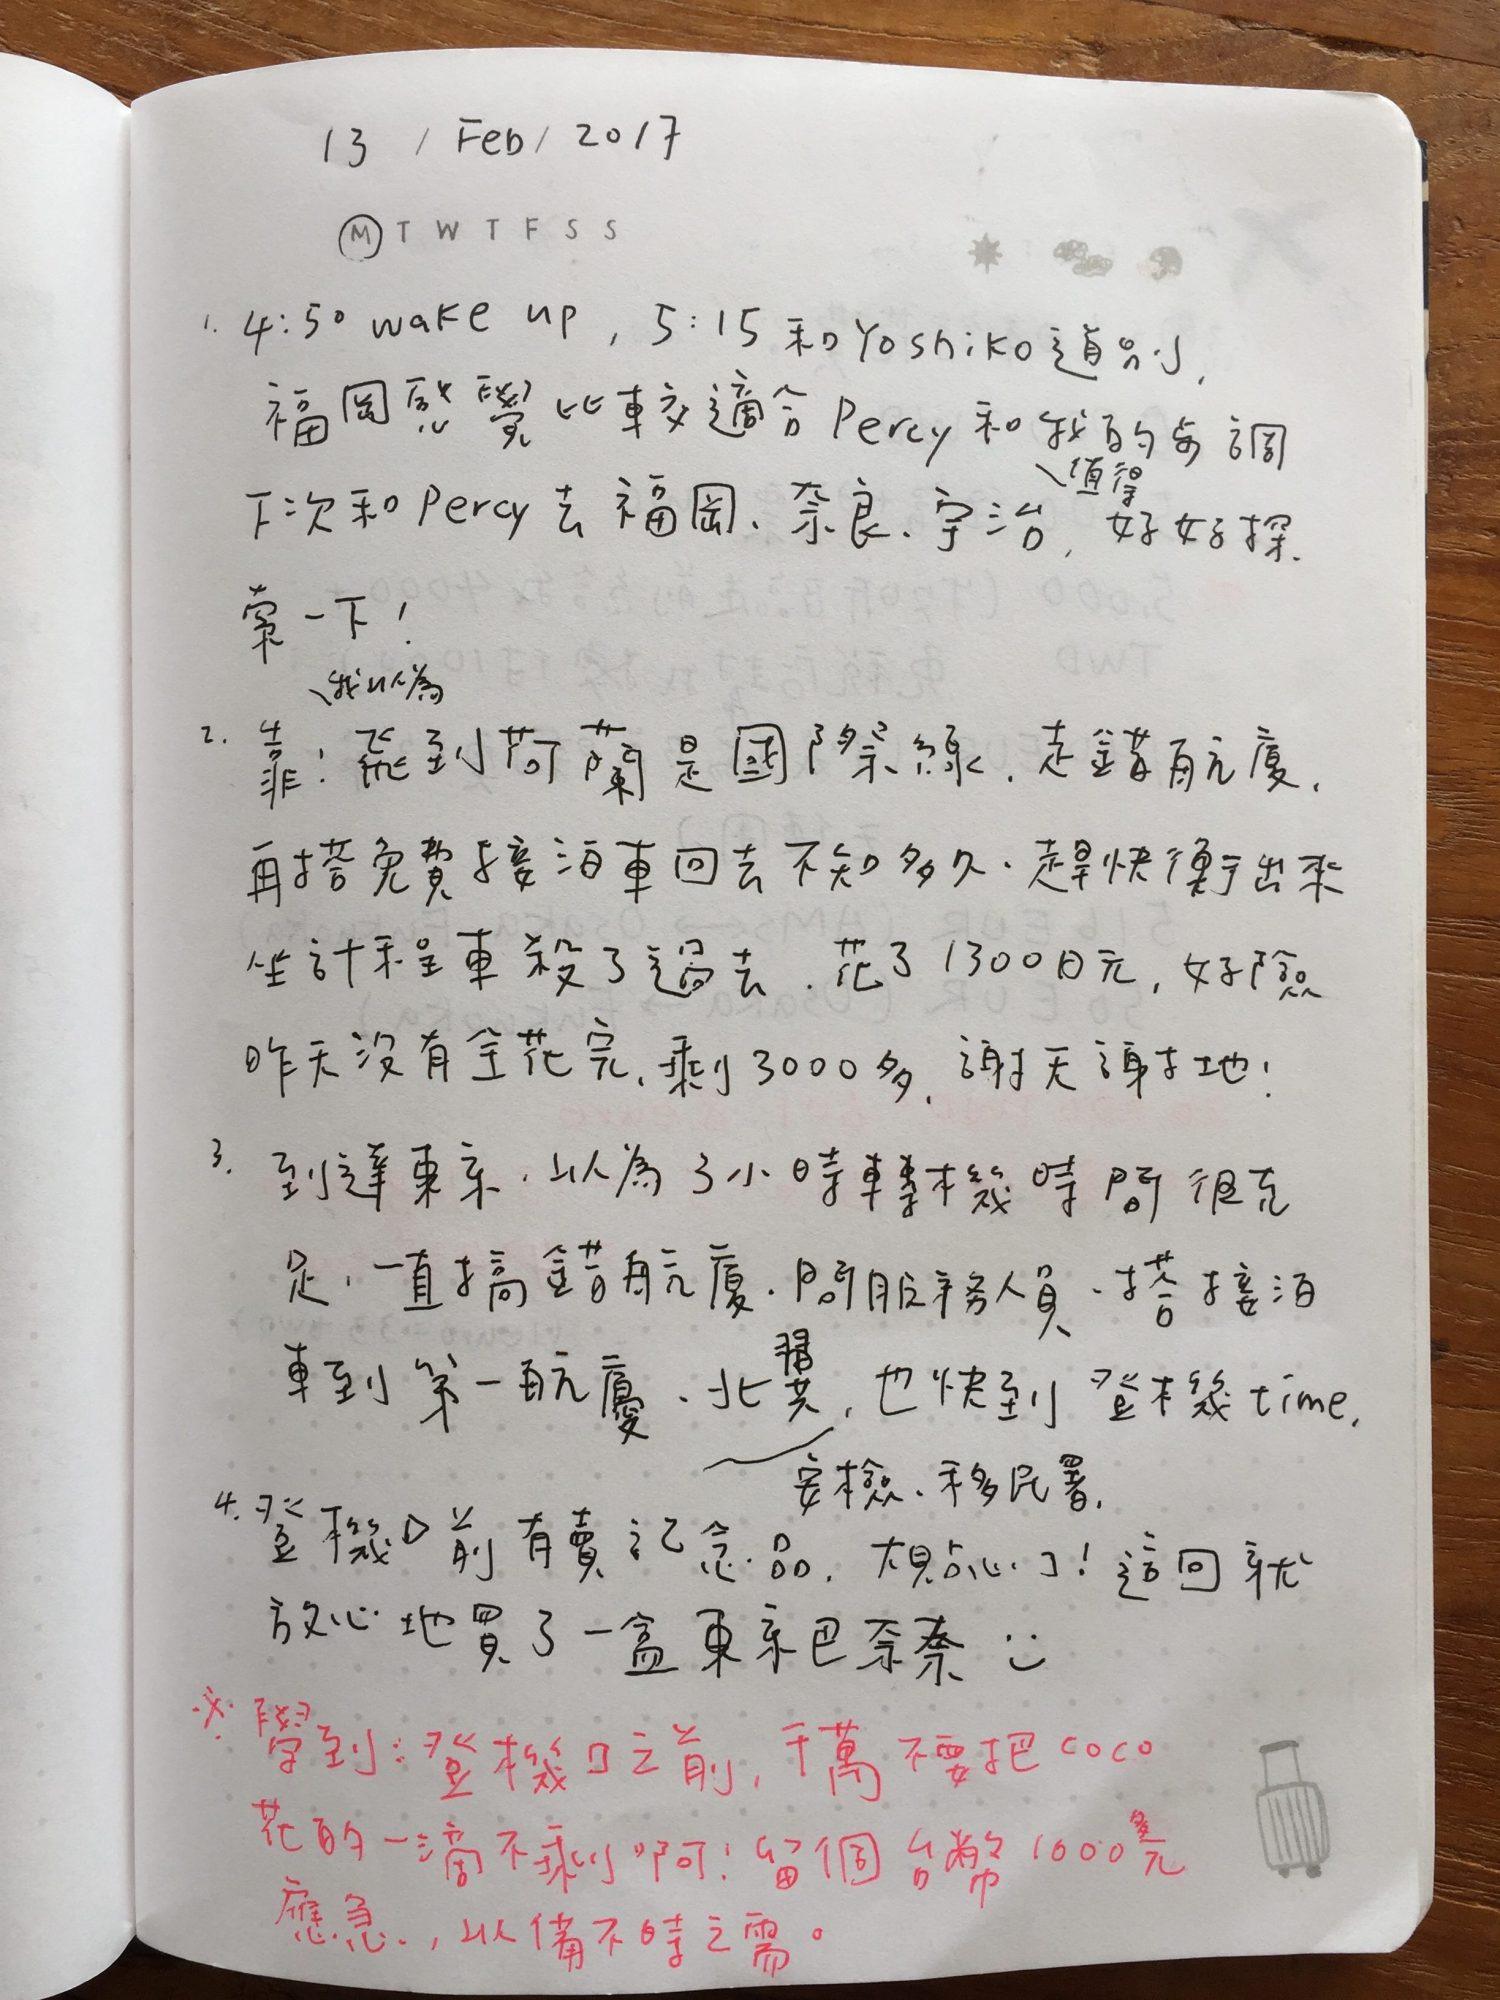 13 / Feb / 2017
M T W T F S S
1. 4:50 wake up, 5:15 和Yoshiko道別,
福岡感覺比較適合Percy和我的步調
下次和Percy去福岡、奈良、宇治, 值得好好探
索一下!
2. 靠! 我以為飛到荷蘭是國際線, 走錯航廈,
再搭免費接泊車回去不知多久, 趕快衝出來
坐計程車殺了過去, 花了1300日元, 好險
昨天沒有全花完, 剩3000多, 謝天謝地!
3. 到達東京, 以為3小時轉機時間很充
足, 一直搞錯航廈, 問服務人員, 搭接泊
車到第一航廈、北翼, 也快到登機time,
安檢、移民署,
4. 登機口前有賣記念品, 太貼心了! 這回就
放心地買了一盒東京巴奈奈
※ 學到: 登機口之前, 千萬不要把coco
花的一滴不剩啊! 留個台幣1000多元
應急, 以備不時之需。